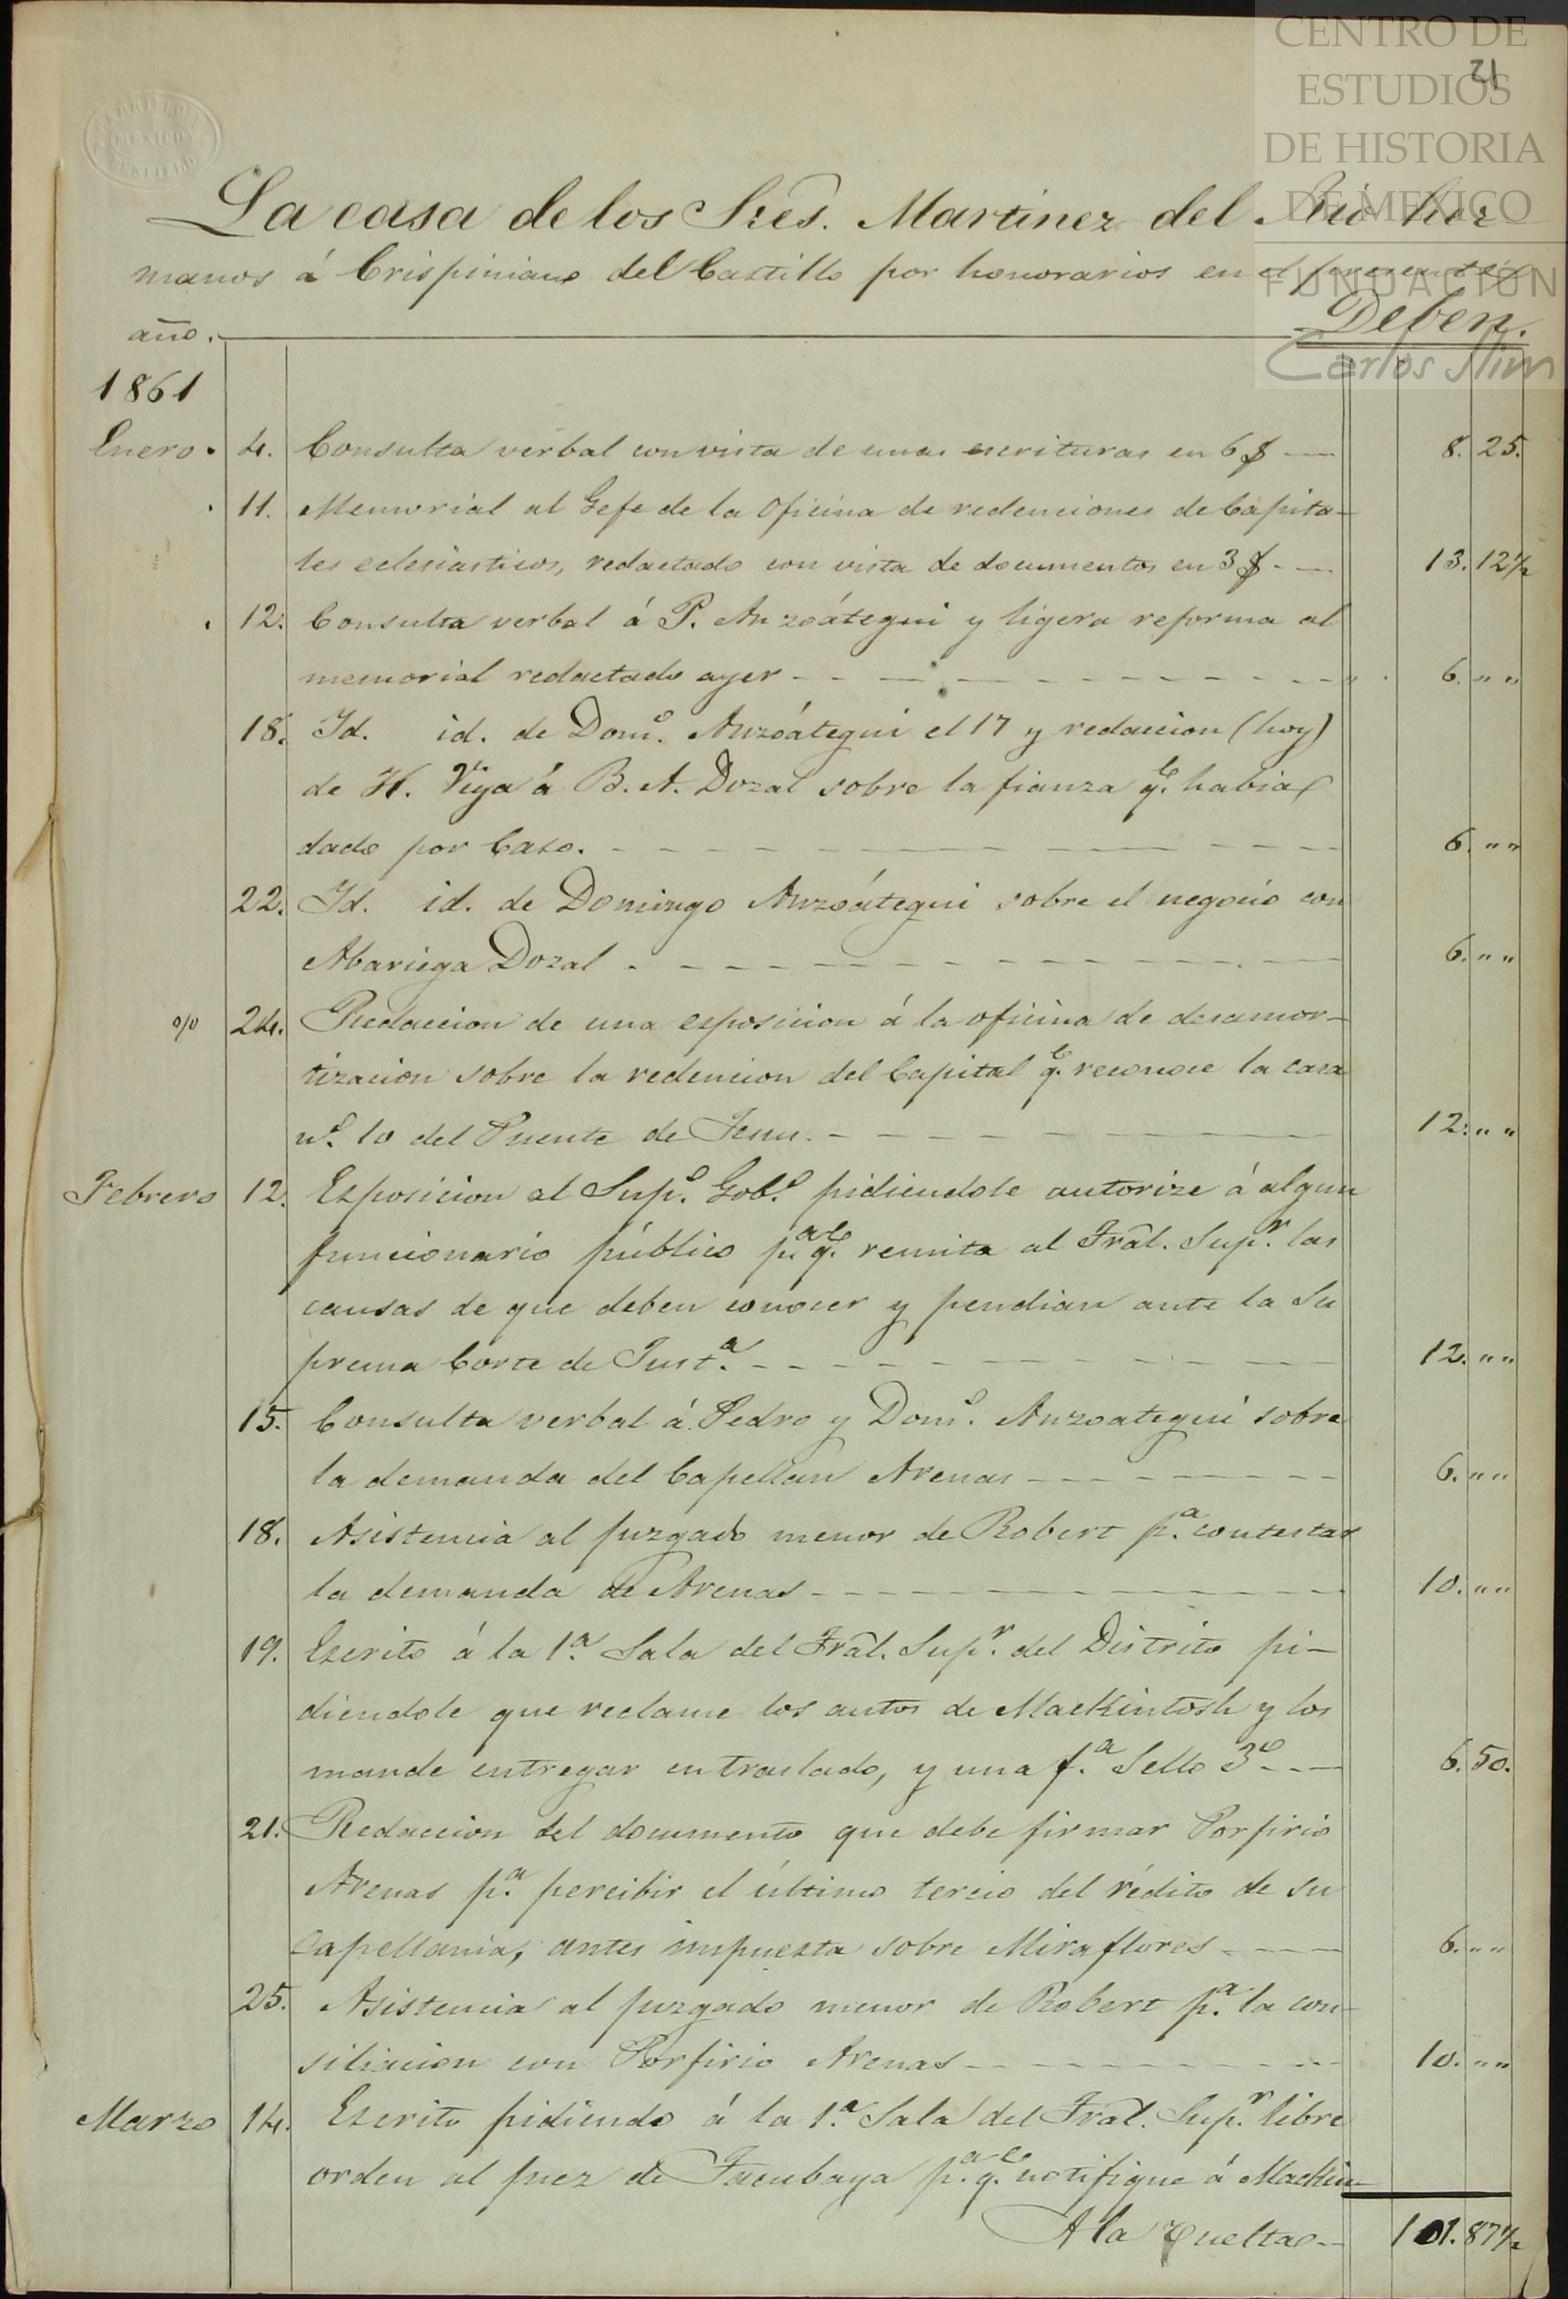 CENTRO DE
ESTUDIOS
DE HISTORIA
DE MEXICO
FUNDACION
Carlos Slim
21
MEXICO
La casa de los Sres. Martinez del Rio her
manos á Crispiniano del Castillo por honorarios en el presente
año. Deben.
1861
Enero. 4. Consulta verbal con vista de unas escrituras en 6 $ 8. 25.
11. Memorial al Gefe de la Oficina de redenciones de Capita-
les eclesiasticos, redactado con vista de documentos en 3 $ 13. 12½
12. Consulta verbal á P. Anzoátegui y ligera reforma al
memorial redactado ayer 6. „ „
18. Id. id. de Domo. Anzoátegui el 17 y redaccion (hoy)
de H. Viya á B. A. Dozal sobre la fianza qe. habia
dado por Caso. 6. „ „
22. Id. id. de Domingo Anzoátegui sobre el negocio con
Abariega Dozal 6. „ „
o/o 24. Redaccion de una esposicion á la oficina de desamor-
tizacion sobre la redencion del Capital qe. reconoce la casa
no. 10 del Puente de Jesus. 12. „ „
Febrero 12. Esposicion al Supo. Gobo. pidiendole autorize á algun
funcionario público pa. qe. remita al Tral. Supr. las
causas de que deben conocer y pendian ante la Su
prema Corte de Justa. 12. „ „
15. Consulta verbal á Pedro y Domo. Anzoategui sobre
la demanda del Capellan Arenas 6. „ „
18. Asistencia al juzgado menor de Robert pa. contestar
la demanda de Arenas 10. „ „
19. Escrito á la 1a. Sala del Tral. Supr. del Distrito pi-
diendole que reclame los autos de Mackintosh y los
mande entregar en traslado, y una fa. Sello 3o 6. 50.
21. Redaccion del documento que debe firmar Porfirio
Arenas pa. percibir el último tercio del rédito de su
capellania, antes impuesta sobre Miraflores 6. „ „
25. Asistencia al juzgado menor de Robert pa. la con-
siliacion con Porfirio Arenas 10. „ „
Marzo 14. Escrito pidiendo á la 1a. Sala del Tral. Supr. libre
orden al juez de Tacubaya pa. qe. notifique á Mackin-
A la vuelta 101. 87½